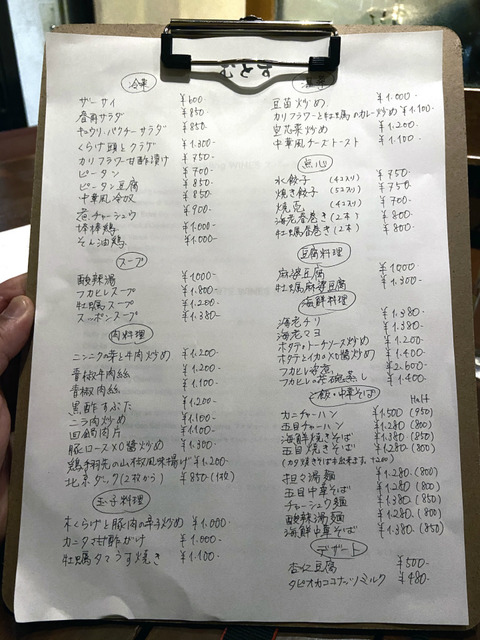 冷菜
ザーサイ ¥600-
春雨サラダ ¥850-
キュウリ・パクチーサラダ ¥850-
くらげ頭とクラゲ ¥1.300-
カリフラワー甘酢漬け ¥750-
ピータン ¥700-
ピータン豆腐 ¥850-
中華風冷奴 ¥850-
煮チャーシュウ ¥900-
棒棒鶏 ¥1.000-
ねぎ油鶏 ¥1.000-
スープ
酸辣湯 ¥1000-
フカヒレスープ ¥1.800-
牡蠣スープ ¥1.200-
スッポンスープ ¥1.380-
肉料理
ニンニクの芽と牛肉炒め ¥1.200-
青椒牛肉絲 ¥1.200-
青椒肉絲 ¥1.100-
黒酢すぶた ¥1.200-
ニラ肉炒め ¥1.100-
回鍋肉片 ¥1.100-
豚ロースXO醬炒め ¥1.300-
鶏手羽先の山椒風味揚げ ¥1.200-
北京ダック(2枚から) ¥850(1枚)
玉子料理
木くらげと豚肉の玉子炒め ¥1.000-
カニ玉甘酢がけ ¥1.000-
牡蠣タマうす焼き ¥1.100-
豆苗炒め ¥1.000-
カリフラワーと牡蠣のカレー炒め ¥1.100-
空芯菜炒め ¥1.200-
中華風チーズトースト ¥1.100-
点心
水餃子 (4コ入り) ¥750-
焼き餃子 (5コ入り) ¥750-
焼売 (4コ入り) ¥700-
海老春巻き(2本) ¥800-
牡蠣春巻き(2本) ¥800-
豆腐料理
麻婆豆腐 ¥1000
牡蠣麻婆豆腐 ¥1.300-
海鮮料理
海老チリ ¥1.380-
海老マヨ ¥1.380-
ホタテ・トーチソース炒め ¥1.200-
ホタテとイカのXO醬炒め ¥1.400-
フカヒレ姿煮 ¥2.600-
フカヒレ茶碗蒸し ¥1.400-
ご飯・中華そば
Half
カニチャーハン ¥1.500 (950)
五目チャーハン ¥1.280 (800)
海鮮焼きそば ¥1.380 (850)
五目焼きそば ¥1.280 (800)
(カタ焼きそばも出来ます. +200)
担々湯麺 ¥1.280.(800)
五目中華そば ¥1.280 (800)
チャーシュウ麺 ¥1.380 (850)
酸辣湯麺 ¥1.280.(800)
海鮮中華そば ¥1.380.(850)
デザート
杏仁豆腐 ¥500-
タピオカココナッツミルク ¥480-